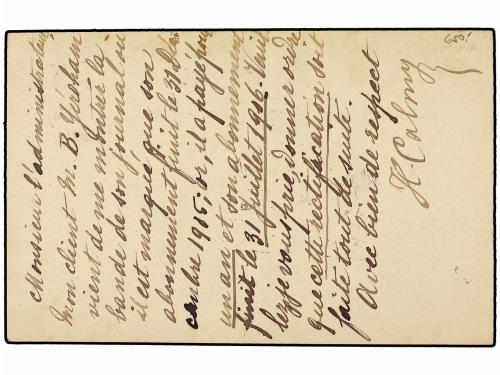 Monsieur l'administrateur
Mon client M. B. Yéroham
vient de me montrer la
bande de son journal ou
il est marqué que son
abonnement finit le 31 Dé
cembre 1915, or, il a payé pour
un an et son abonnement
finit le 31 juillet 1916. Veuil
lez je vous prie donner ordre
que cette rectification soit
faite tout de suite.
Avec bien de respect